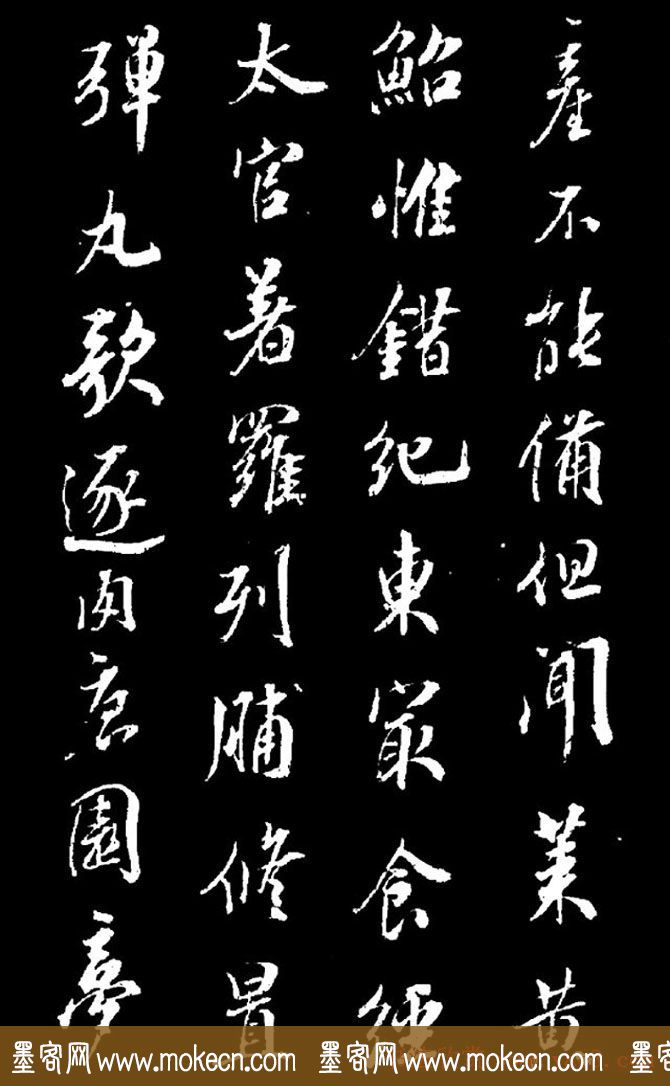 產不能備但聞萊黃
鮐惟錯紀東冣食經
太官著羅列脯修冒
彈丸歌逐肉園
墨客网 www.mokecn.com 墨客网 www.mokecn.com 墨客